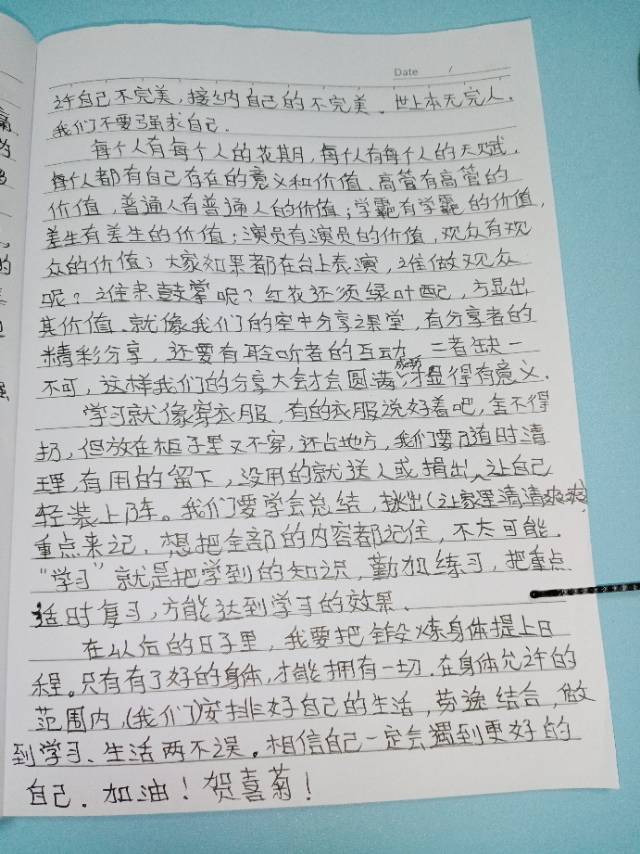 Date /
许自己不完美,接纳自己的不完美。世上本无完人,
我们不要强求自己.
每个人有每个人的花期,每个人有每个人的天赋,
每个人都有自己存在的意义和价值。高管有高管的
价值,普通人有普通人的价值;学霸有学霸的价值,
差生有差生的价值;演员有演员的价值,观众有观
众的价值;大家如果都在台上表演,谁做观众
呢?谁来鼓掌呢?红花还须绿叶配,方显出
其价值.就像我们的空中分享课堂,有分享者的
精彩分享,还要有聆听者的互动,二者缺一
不可,这样我们的分享大会才会圆满,才显得有意义.
学习就像穿衣服,有的衣服说好看吧,舍不得
扔,但放在柜子里又不穿,还占地方,我们要适时清
理,有用的留下,没用的就送人或捐出,让自己
轻装上阵。我们要学会总结,挑出(让家里清清爽爽)
重点来记.想把全部的内容都记住,不太可能.
“学习”就是把学到的知识,勤加练习,把重点
适时复习,方能达到学习的效果.
在以后的日子里,我要把锻炼身体提上日
程。只有有了好的身体,才能拥有一切.在身体允许的
范围内,(我们)安排好自己的生活,劳逸结合,做
到学习、生活两不误。相信自己一定会遇到更好的
自己.加油!贺喜菊!